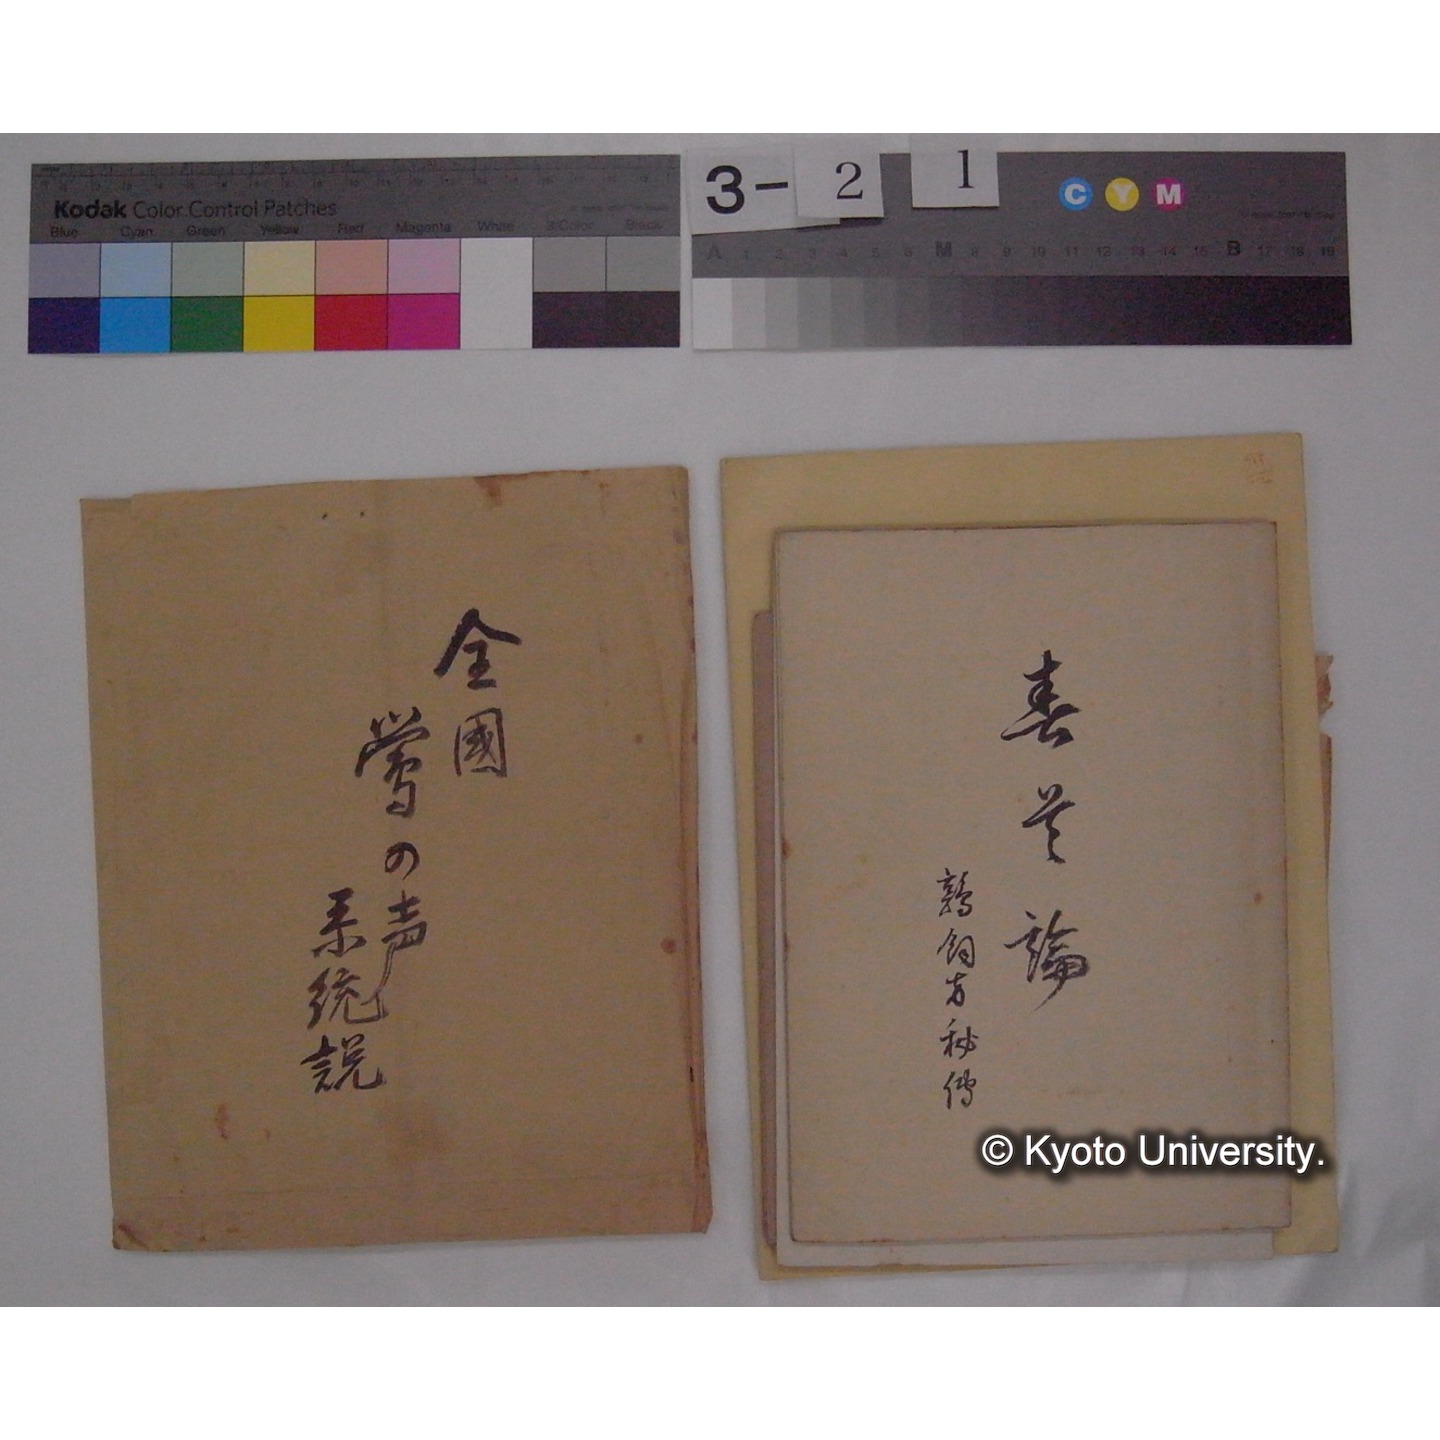 Kodak Color Control Patches
Blue Cyan Green Yellow Red Magenta White 3/Color Black
3- 2 1
C Y M
A 1 2 3 4 5 6 M 8 9 10 11 12 13 14 15 B 17 18 19
全國
鶯の声
系統説
春 論
鶉飼方秘傳
© Kyoto University.